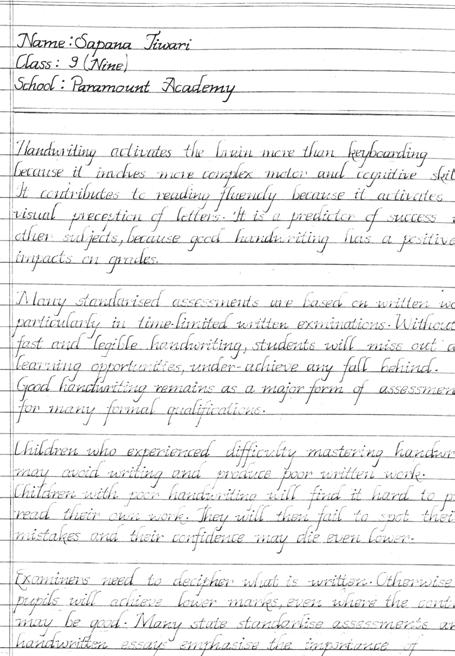 Name: Sapana Tiwari
Class: 9 (Nine)
School: Paramount Academy
Handwriting activates the brain more than keyboarding
because it involves more complex motor and cognitive skil
It contributes to reading fluency because it activates
visual preception of letters. It is a predictor of success
other subjects, because good handwriting has a positive
impacts on grades.
Many standarised assessments are based on written wo
particularly in time-limited written examinations. Without
fast and legible handwriting, students will miss out
learning opportunities, under-achieve any fall behind.
Good handwriting remains as a major form of assessmen
for many formal qualifications.
Children who experienced difficulty mastering handwr
may avoid writing and produce poor written work.
Children with poor handwriting will find it hard to p
read their own work. They will then fail to spot thei
mistakes and their confidence may die even lower.
Examiners need to decipher what is written. Otherwise
pupils will achieve lower marks, even where the cont
may be good. Many state standarlise assessments a
handwritten essays emphasise the importance of